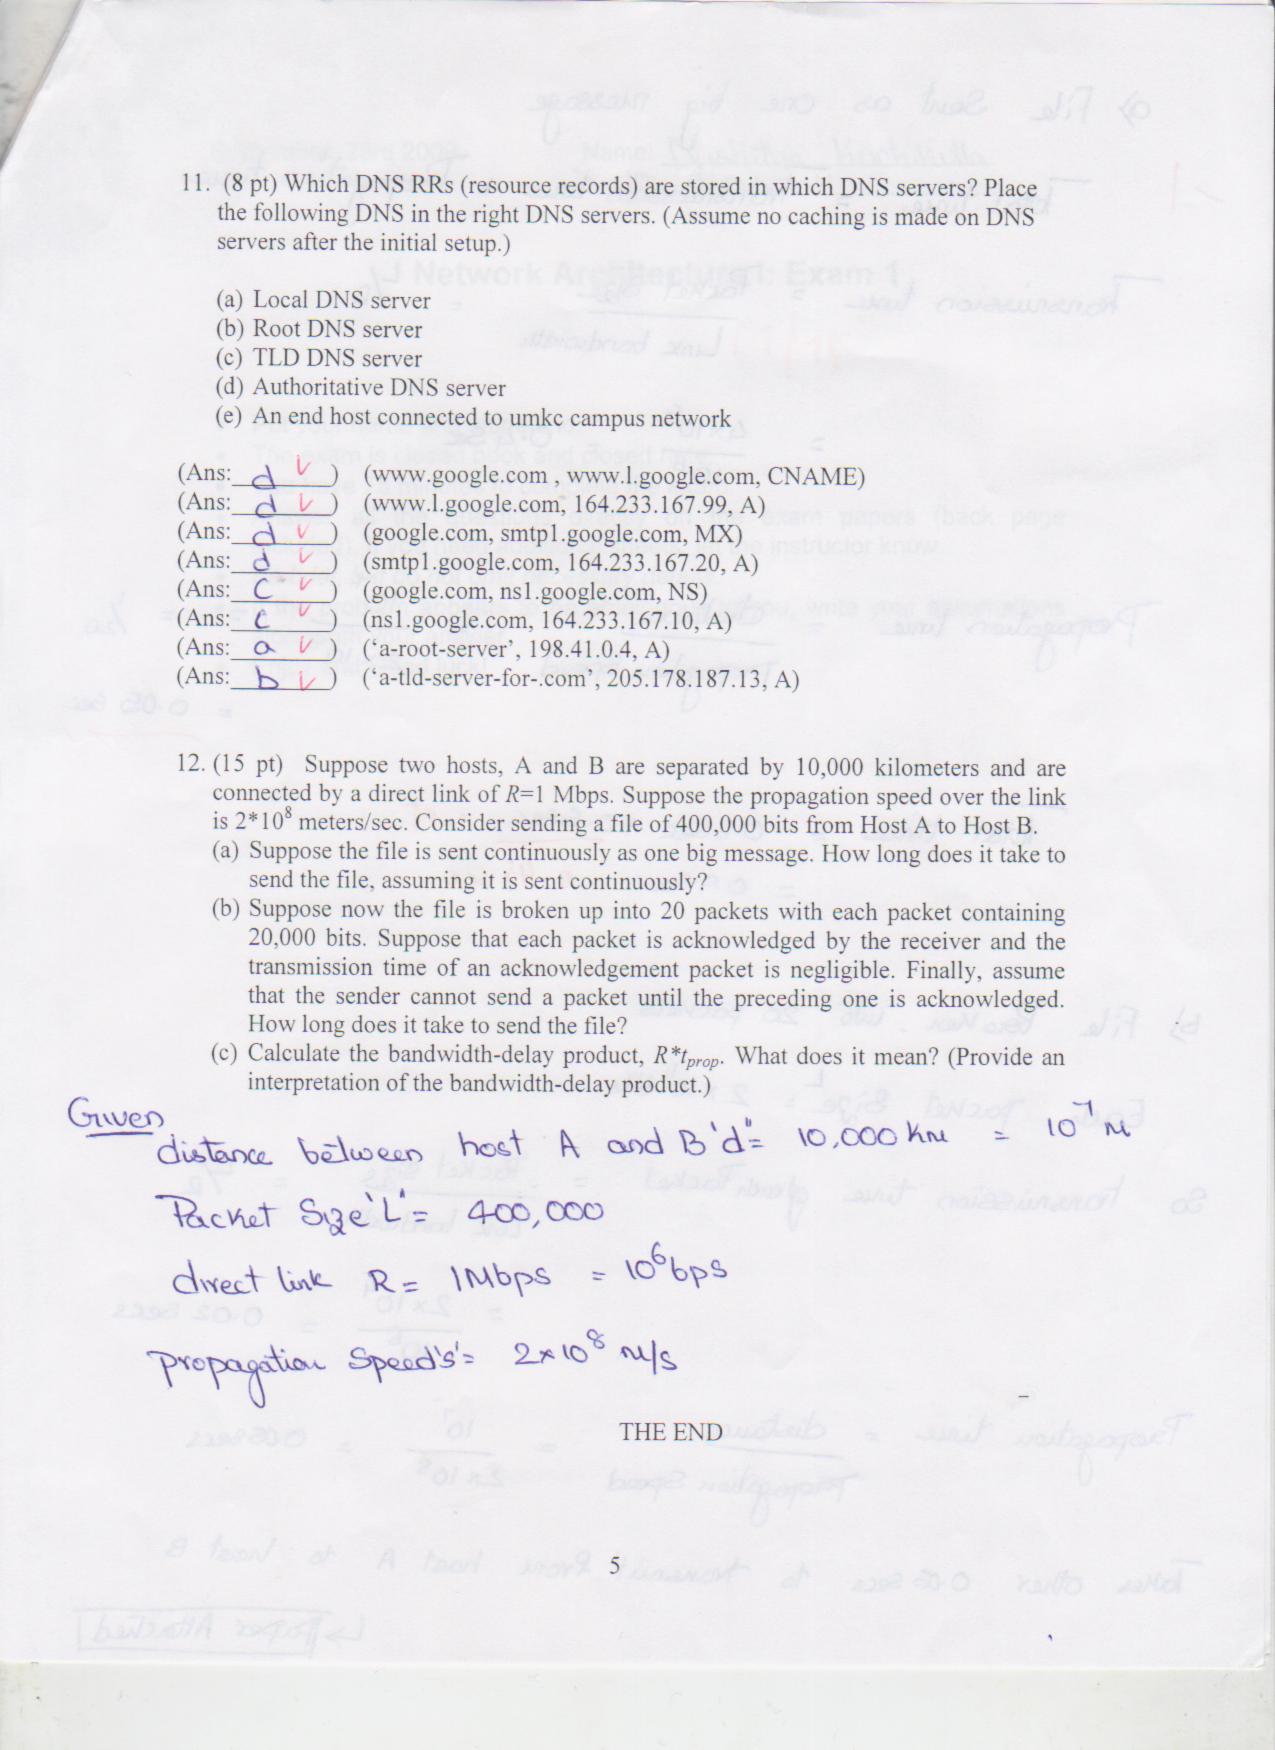 11. (8 pt) Which DNS RRs (resource records) are stored in which DNS servers? Place
the following DNS in the right DNS servers. (Assume no caching is made on DNS
servers after the initial setup.)
(a) Local DNS server
(b) Root DNS server
(c) TLD DNS server
(d) Authoritative DNS server
(e) An end host connected to umkc campus network
(Ans: d ✓ ) (www.google.com , www.l.google.com, CNAME)
(Ans: d ✓ ) (www.l.google.com, 164.233.167.99, A)
(Ans: d ✓ ) (google.com, smtp1.google.com, MX)
(Ans: d ✓ ) (smtp1.google.com, 164.233.167.20, A)
(Ans: C ✓ ) (google.com, ns1.google.com, NS)
(Ans: C ✓ ) (ns1.google.com, 164.233.167.10, A)
(Ans: a ✓ ) (‘a-root-server’, 198.41.0.4, A)
(Ans: b ✓ ) (‘a-tld-server-for-.com’, 205.178.187.13, A)
12. (15 pt) Suppose two hosts, A and B are separated by 10,000 kilometers and are
connected by a direct link of R=1 Mbps. Suppose the propagation speed over the link
is 2*10⁸ meters/sec. Consider sending a file of 400,000 bits from Host A to Host B.
(a) Suppose the file is sent continuously as one big message. How long does it take to
send the file, assuming it is sent continuously?
(b) Suppose now the file is broken up into 20 packets with each packet containing
20,000 bits. Suppose that each packet is acknowledged by the receiver and the
transmission time of an acknowledgement packet is negligible. Finally, assume
that the sender cannot send a packet until the preceding one is acknowledged.
How long does it take to send the file?
(c) Calculate the bandwidth-delay product, R*tprop. What does it mean? (Provide an
interpretation of the bandwidth-delay product.)
Given
distance between host A and B 'd' = 10,000 km = 10⁷ M
Packet Size 'L' = 400,000
direct link R = 1Mbps = 10⁶ bps
propagation Speed 's' = 2×10⁸ M/s
THE END
5